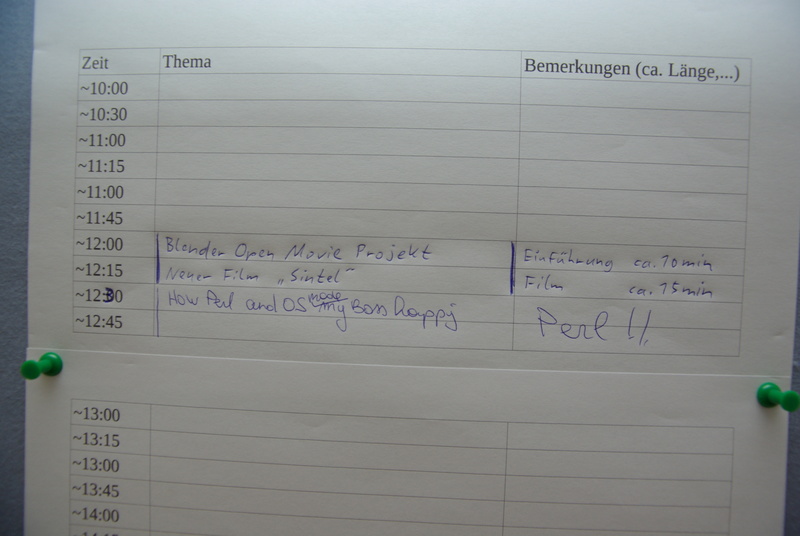 Zeit Thema Bemerkungen (ca. Länge,...)
~10:00
~10:30
~11:00
~11:15
~11:00
~11:45
~12:00 Blender Open Movie Projekt Einführung ca. 10min
~12:15 Neuer Film „Sintel" Film ca. 15min
~12:30 How Perl and OS made my Boss happy Perl !!
~12:45
~13:00
~13:15
~13:00
~13:45
~14:00